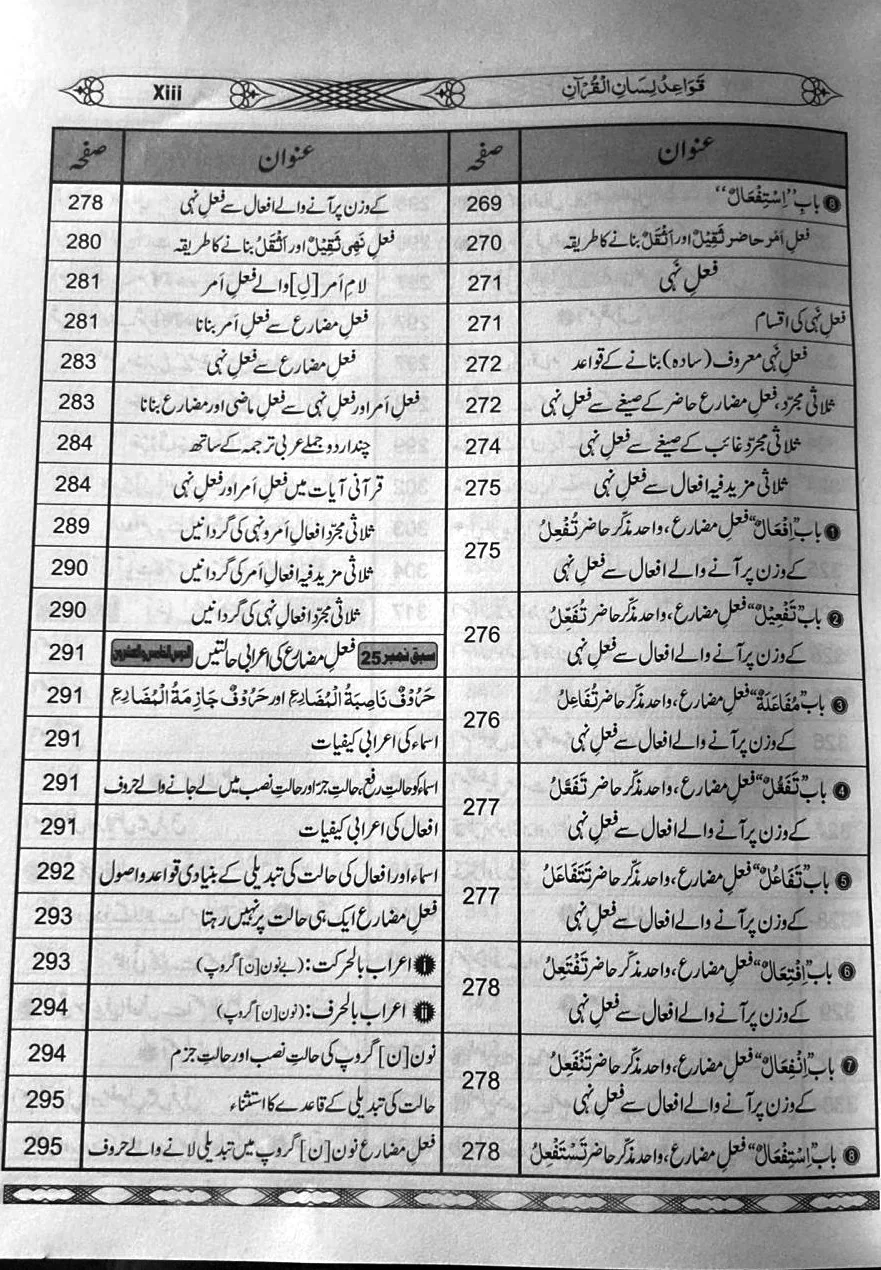 قَوَاعِدُ لِسَانِ الْقُرْآنِ
Xiii
عنوان صفحہ
❽ بابِ ’’اِسْتِفْعَالٌ‘‘ 269
فعلِ اَمر حاضر ثَقِیْلٌ اور اَثْقَلُ بنانے کا طریقہ 270
فعلِ نَہی 271
فعلِ نَہی کی اقسام 271
فعلِ نَہی معروف (سادہ) بنانے کے قواعد 272
ثلاثی مجرّد، فعلِ مضارع حاضر کے صیغے سے فعلِ نہی 272
ثلاثی مجرّد غائب کے صیغے سے فعلِ نہی 274
ثلاثی مزید فیہ افعال سے فعلِ نہی 275
❶ باب ”اِفْعَالٌ“ فعلِ مضارع، واحد مذکّر حاضر تُفْعِلُ
کے وزن پر آنے والے افعال سے فعلِ نہی 275
❷ باب ”تَفْعِیْلٌ“ فعلِ مضارع، واحد مذکّر حاضر تُفَعِّلُ
کے وزن پر آنے والے افعال سے فعلِ نہی 276
❸ باب ”مُفَاعَلَةٌ“ فعلِ مضارع، واحد مذکّر حاضر تُفَاعِلُ
کے وزن پر آنے والے افعال سے فعلِ نہی 276
❹ باب ”تَفَعُّلٌ“ فعلِ مضارع، واحد مذکّر حاضر تَتَفَعَّلُ
کے وزن پر آنے والے افعال سے فعلِ نہی 277
❺ باب ”تَفَاعُلٌ“ فعلِ مضارع، واحد مذکّر حاضر تَتَفَاعَلُ
کے وزن پر آنے والے افعال سے فعلِ نہی 277
❻ باب ”اِفْتِعَالٌ“ فعلِ مضارع، واحد مذکّر حاضر تَفْتَعِلُ
کے وزن پر آنے والے افعال سے فعلِ نہی 278
❼ باب ”اِنْفِعَالٌ“ فعلِ مضارع، واحد مذکّر حاضر تَنْفَعِلُ
کے وزن پر آنے والے افعال سے فعلِ نہی 278
❽ باب ”اِسْتِفْعَالٌ“ فعلِ مضارع، واحد مذکّر حاضر تَسْتَفْعِلُ 278
عنوان صفحہ
کے وزن پر آنے والے افعال سے فعلِ نہی 278
فعلِ نَھِی ثَقِیْلٌ اور اَثْقَلُ بنانے کا طریقہ 280
لامِ اَمر [لِ] والے فعلِ اَمر 281
فعلِ مضارع سے فعلِ اَمر بنانا 281
فعلِ مضارع سے فعلِ نہی 283
فعلِ اَمر اور فعلِ نہی سے فعلِ ماضی اور مضارع بنانا 283
چند اردو جملے عربی ترجمہ کے ساتھ 284
قرآنی آیات میں فعلِ اَمر اور فعلِ نہی 284
ثلاثی مجرّد افعالِ اَمر و نہی کی گردانیں 289
ثلاثی مزید فیہ افعالِ اَمر کی گردانیں 290
ثلاثی مجرّد افعالِ نہی کی گردانیں 290
سبق نمبر 25 فعلِ مضارع کی اعرابی حالتیں الدرس الخامس والعشرون 291
حَرُوْفٌ نَاصِبَةُ الْمُضَارِعِ اور حَرُوْفٌ جَازِمَةُ الْمُضَارِعِ 291
اسماء کی اعرابی کیفیات 291
اسماء کو حالتِ رفع، حالتِ جرّ اور حالتِ نصب میں لے جانے والے حروف 291
افعال کی اعرابی کیفیات 291
اسماء اور افعال کی حالت کی تبدیلی کے بنیادی قواعد و اصول 292
فعلِ مضارع ایک ہی حالت پر نہیں رہتا 293
i اعراب بالحرکت: (بے نون [ن] گروپ) 293
ii اعراب بالحرف: (نون [ن] گروپ) 294
نون [ن] گروپ کی حالتِ نصب اور حالتِ جزم 294
حالت کی تبدیلی کے قاعدے کا استثناء 295
فعلِ مضارع نون [ن] گروپ میں تبدیلی لانے والے حروف 295